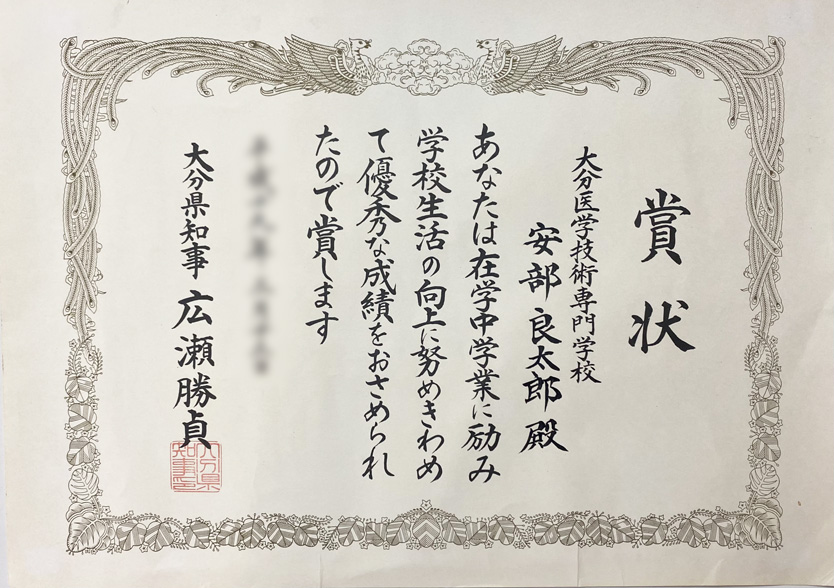 賞状
大分医学技術専門学校
安部良太郎殿
あなたは在学中学業に励み
学校生活の向上に努めきわめ
て優秀な成績をおさめられ
たので賞します
大分県知事 広瀬勝貞
大分県
知事印